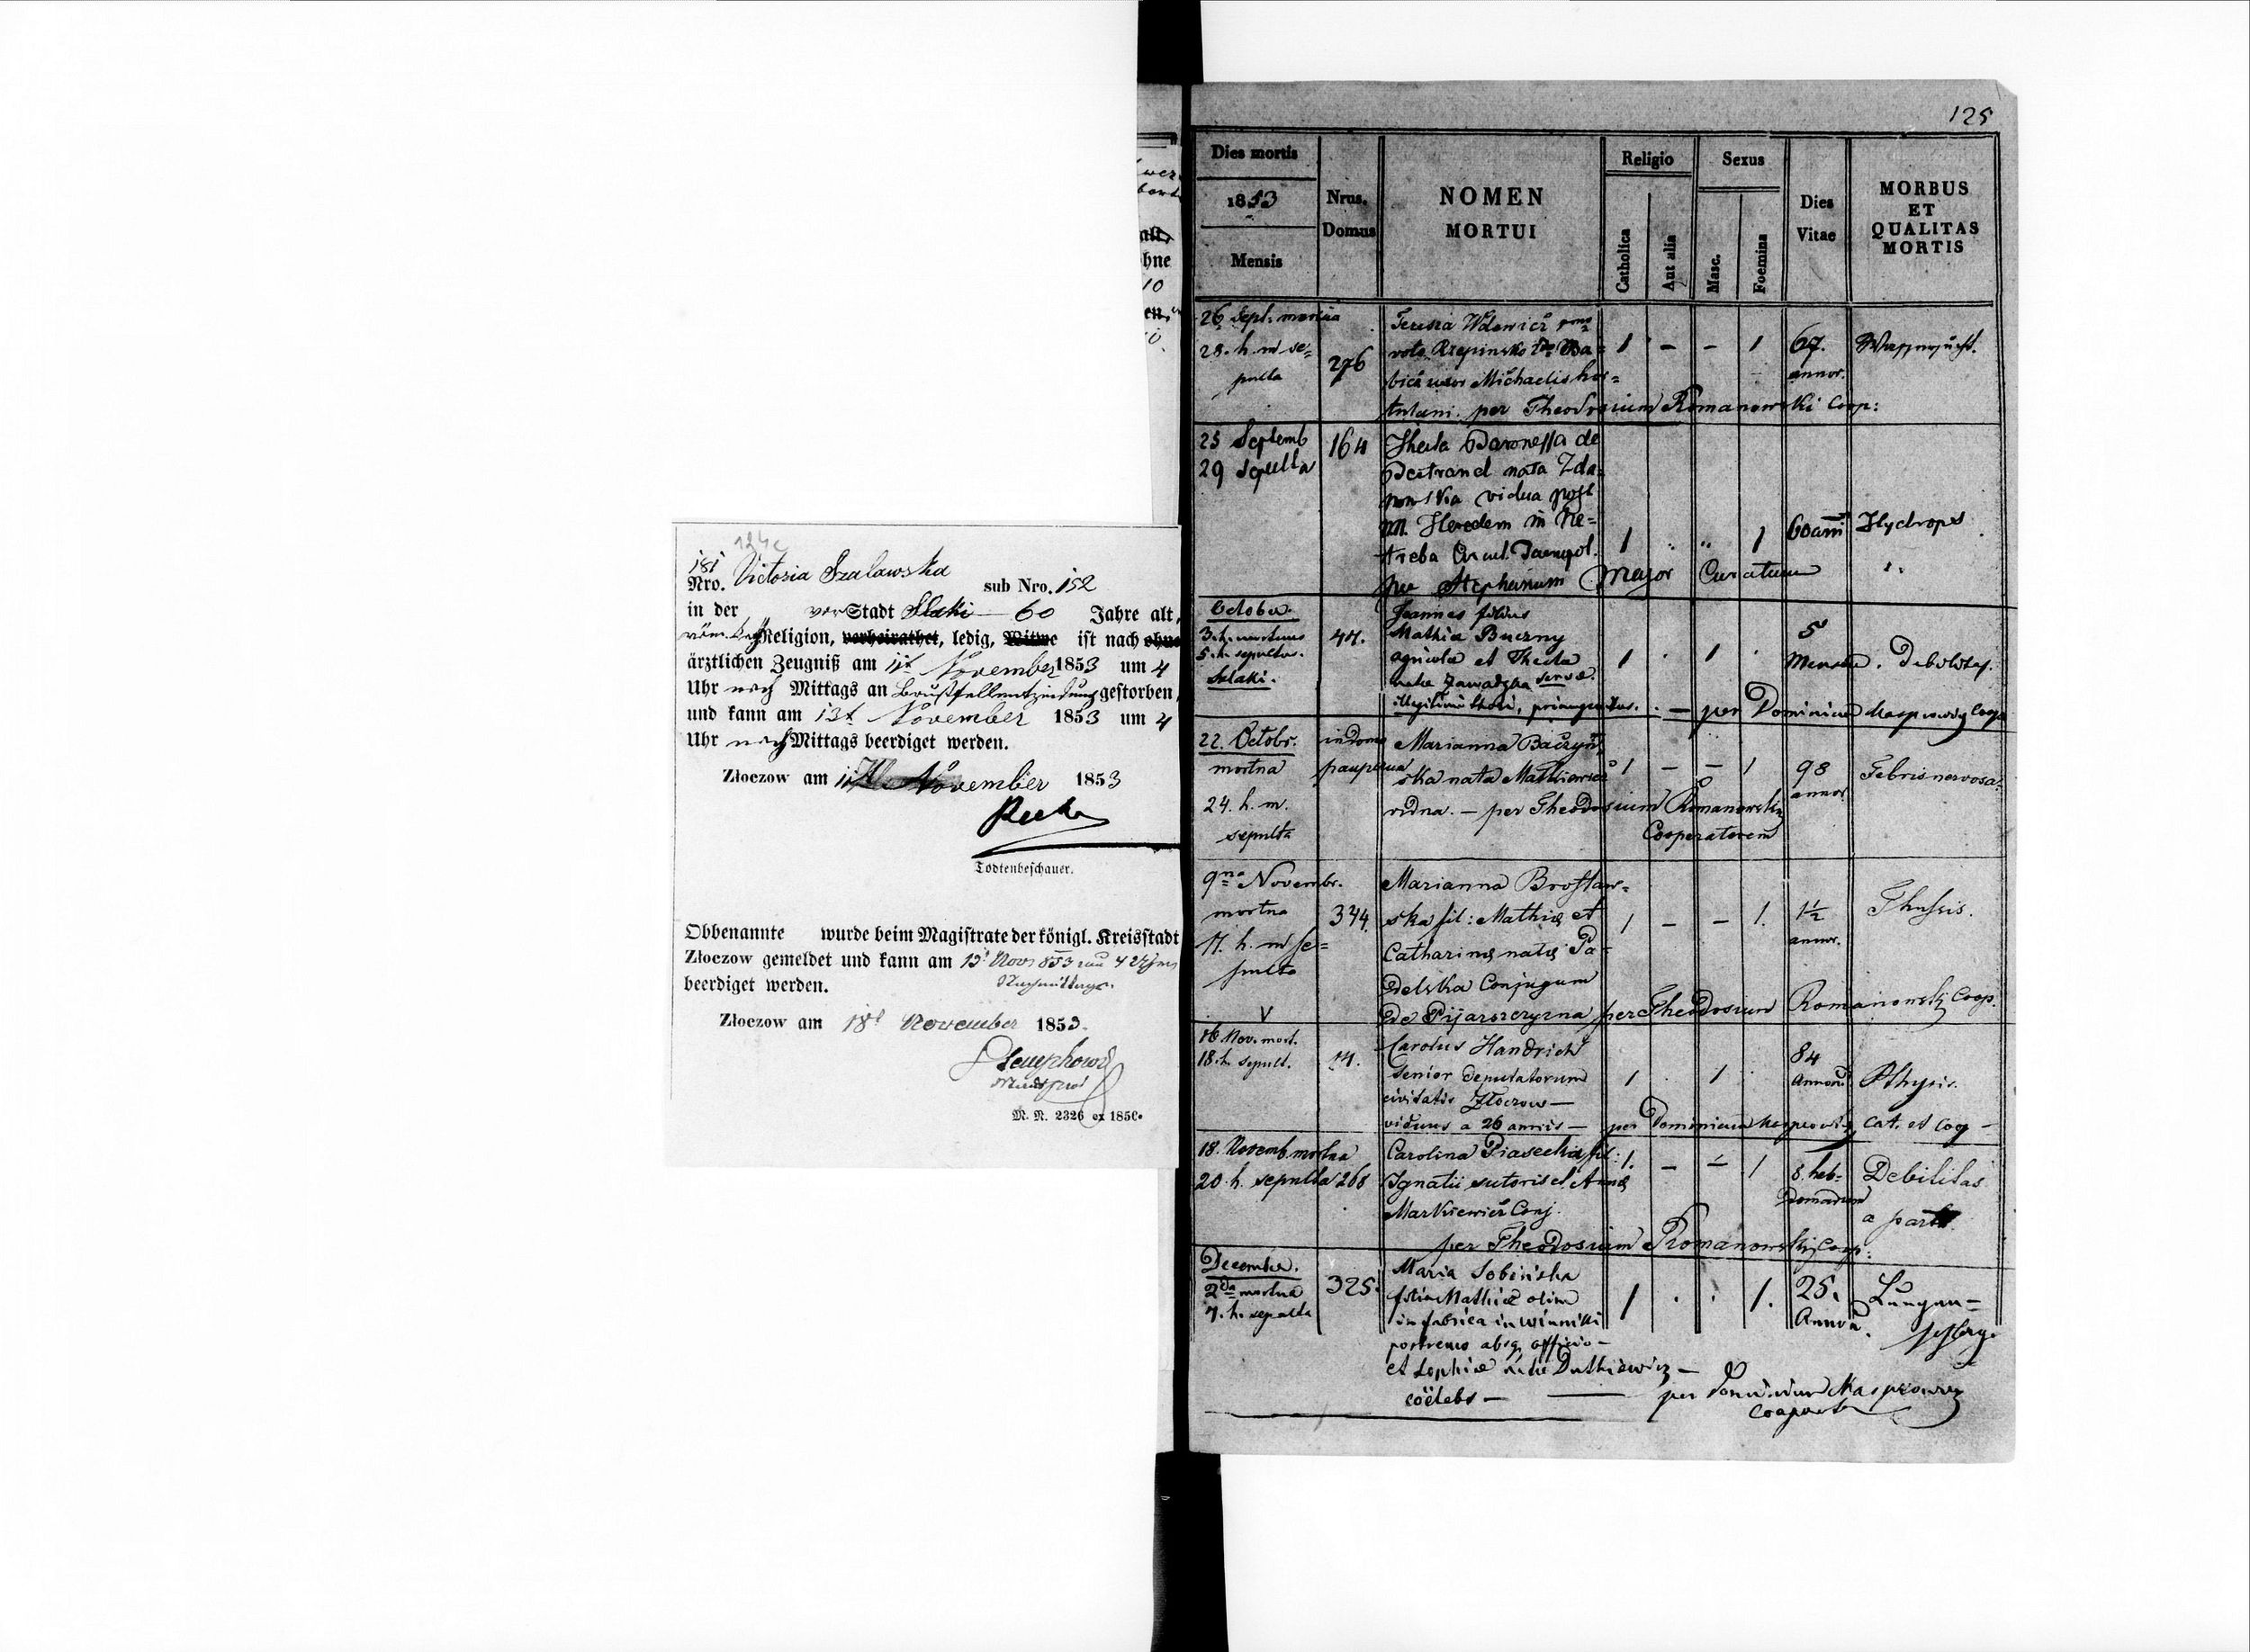 124c
181
Nro. Victoria Szalawska sub Nro. 152
in der vorStadt Szlaki 60 Jahre alt,
röm. kath Religion, verheirathet, ledig, Witwe ist nach ohne
ärztlichen Zeugniß am 11t November 1853 um 4
Uhr nach Mittags an Brustfellentzündung gestorben,
und kann am 13t November 1853 um 4
Uhr nach Mittags beerdiget werden.
Złoczow am November 1853
Todtenbeschauer.
Obbenannte wurde beim Magistrate der königl. Kreisstadt
Złoczow gemeldet und kann am 13t Nov 853 um 4 Uhr
Nachmittags.
beerdiget werden.
Złoczow am November 1853.
M. N. 2326 ex 1850.
hne
10
en,
125
Dies mortis
1853
Mensis
Nrus. Domus
NOMEN MORTUI
Religio
Catholica
Aut alia
Sexus
Masc.
Foemina
Dies Vitae
MORBUS ET QUALITAS MORTIS
26 Sept: mortua Teresia Wdowicz
28. h. m se= 276 voto Rzepinska Ba= 1 – – 1 67. Wassersucht.
pulta bicz uxor Michaelis hor= annor.
tulani. per Theodosium Romanowski Coop:
25 Septemb 164 Thecla Baronessa de
29 sepulta Bertrand nata Zda=
nowska vidua post
Heredem in Ne=
treba Circul. Tarnopol. 1 1 60 Hydrops
per Stephanum Major Curatum
October. Joannes filius
3. h. mortuus 47. Mathia Buczny 5
5. h. sepultus. agricola et Thecla 1 . 1 . Debilitas.
Szlaki. nata Zawadzka
Illegitimi thori, – per Dominicum Kasprowicz Coop
22. Octobr. in domo Marianna Baczyń
mortua pauperum ska nata Maskiewicz 1 – – 1 98 Febris nervosa.
24. h. m. vidua. – per Theodosium Romanowski annor
sepulta Cooperatorem
9na Novembr. Marianna Brosław=
mortua 334. ska fil: Mathiæ et 1 – – 1. 1½ Thysis.
11. h. m se= Catharinæ natæ Pa= annor.
pulta delska Conjugum
V de Pijarszczyzna per Theodosium Romanowski Coop.
16 Nov. mort. Carolus Handrich 84
18. h. sepult. 14. Senior deputatorum 1 . 1 . Annor. Pthysis.
civitatis Złoczow –
viduus a 26 annis – per Dominicum Kasprowicz Cat. et Coop –
18. Novemb. mortua Carolina Piasecka fil: 1. – – 1 8. heb= Debilitas
20. h. sepulta 268 Ignatii sutoris et Annæ domadum a partu
Markiewicz Conj.
per Theodosium Romanowski Coop:
December. Maria Sobińska
2da mortua 325. filia Mathiæ olim 1 . . 1. 25. Lungen=
7. h. sepulta in fabrica in Winniki Annor.
postremo absq officio –
et Sophiæ natæ Dutkiewicz –
cœlebs – per Dominicum Kasprowicz
Cooperator